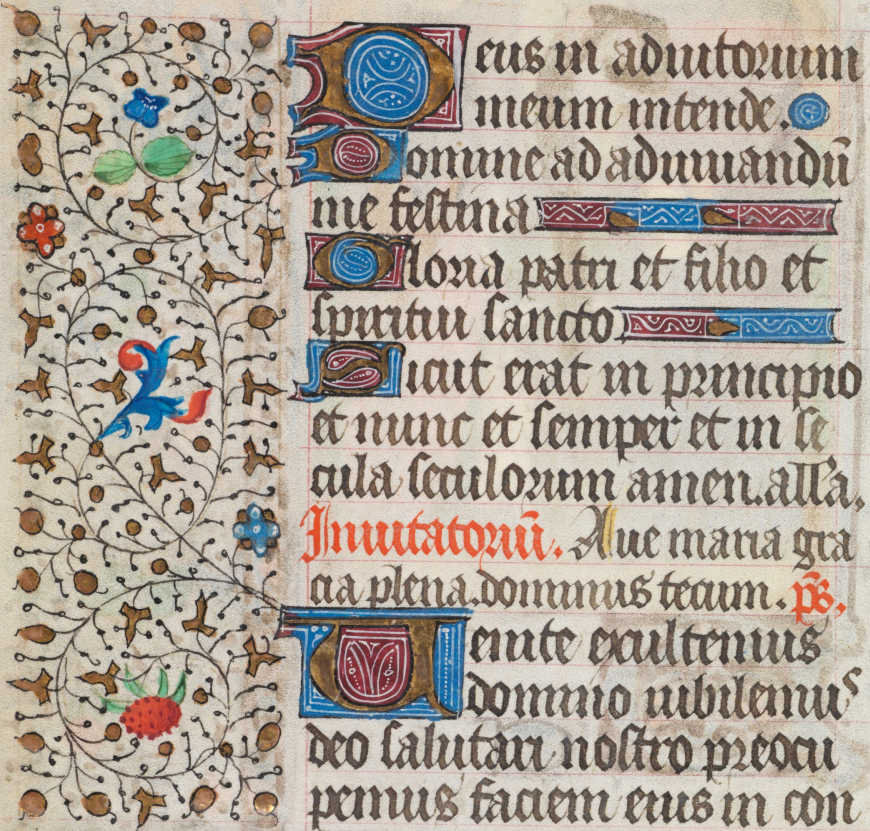 Deus in adiutorium
meum intende.
Domine ad adiuuandū
me festina
Gloria patri et filio et
spiritui sancto
Sicut erat in principio
et nunc et semper et in se
cula seculorum amen. alla.
Inuitatoriū. Aue maria gra
cia plena. dominus tecum. ps.
Uenite exultemus
domino iubilemus
deo salutari nostro preocu
pemus faciem eius in con